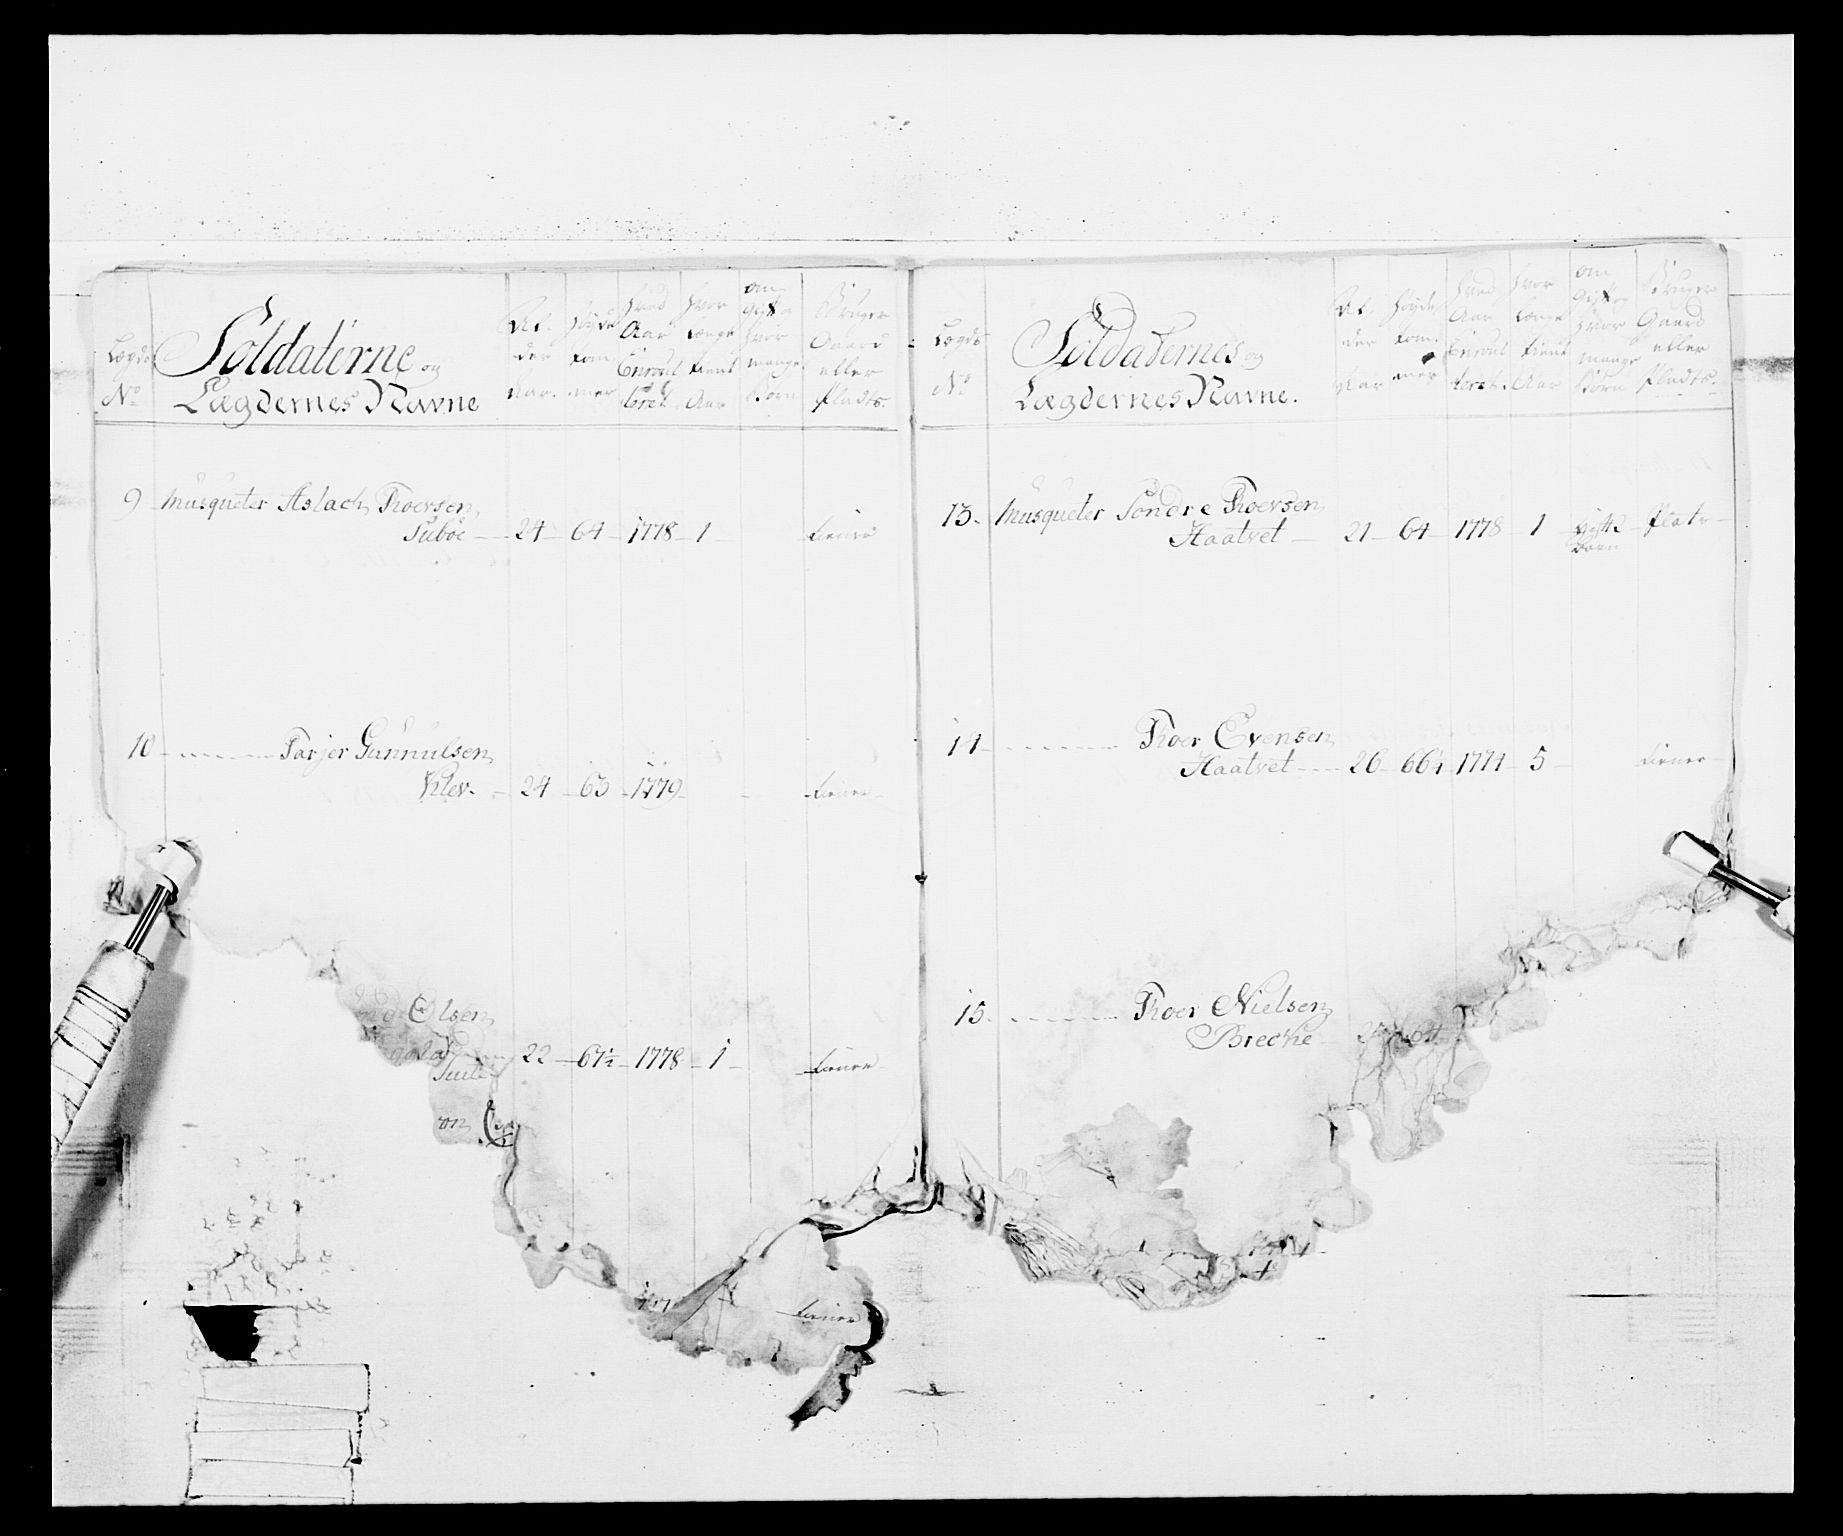 Lægds No
Soldaterne og
Lægdernes Navne
Al-
der
Aar.
Høyde
tom-
mer
hvad
Aar
Enroul
leret.
hvor
længe
tient
Aar
om
gift og
hvor
mange
Børn
Bruger
Gaard
eller
Plads.
9 Musqueter Aslach Thoersen
Suboe 24 64 1778 1 tiener
10 Tarjer Gunnulsen
Klev. 24 63 1779 tiener
Olsen
22 67½ 1778 1 tiener
tiener
Lægds No
Soldaternes og
Lægdernes Navne.
Al-
der
Aar
Høyde
tom-
mer
hvad
Aar
Enroul
leret.
hvor
længe
tient
Aar
om
Gift og
hvor
mange
Børn
Bruger
Gaard
eller
Plads.
13. Musqueter Sondre Thoersen
Haatvet 21 64 1778 1 gift 2 Plads
Børn
14 Thoer Evensen
Haatvet 26 66¼ 1774 5 tiener
15. Thoer Nielsen
Breche